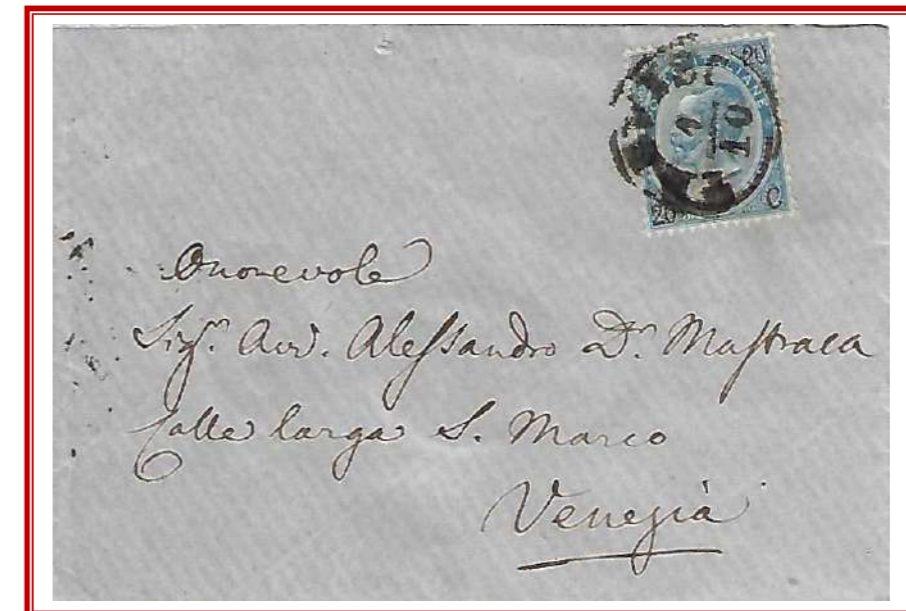 20
4
10
20 C
Onorevole
Sigr. Avv. Alessandro Dr. Mastraca
Calle larga S. Marco
Venezia